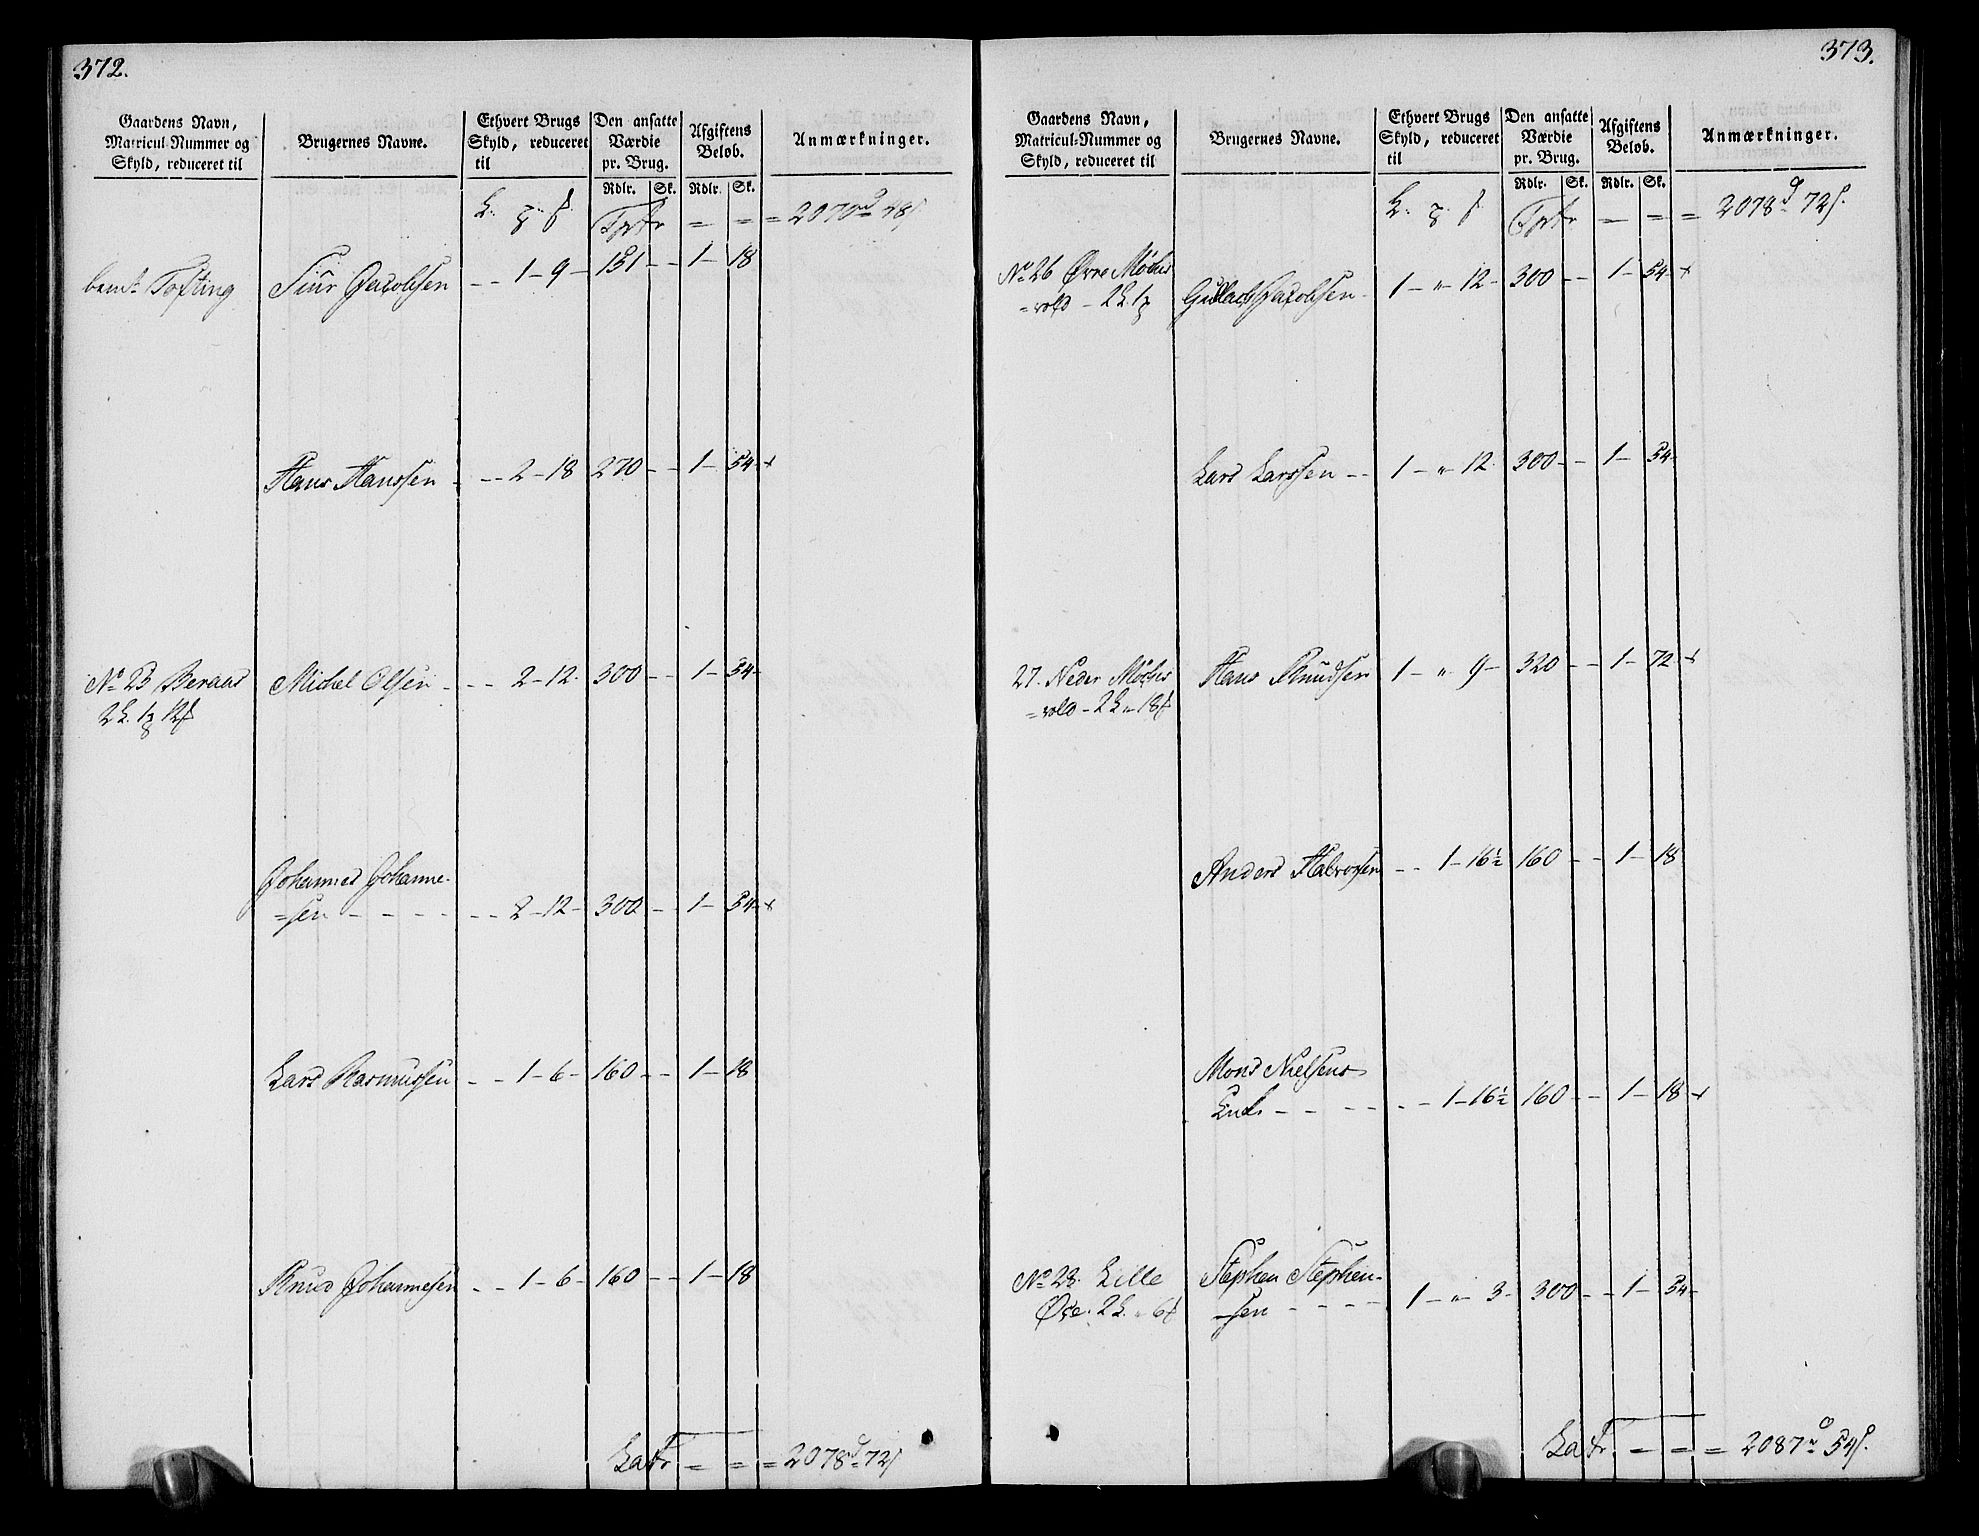 372.
Gaardens Navn, Matricul-Nummer og Skyld, reduceret til | Brugernes Navne. | Ethvert Brugs Skyld, reduceret til | Den ansatte Værdie pr. Brug. | Afgiftens Beløb. | Anmærkninger.
Rdlr. | Sk. | Rdlr. | Sk.
Tptr = = = 2070 48
Tofting Siur Jacobsen - - 1 - 9 - 131 - - 1 - 18
Hans Hanssen - - - 2 - 18 270 - - 1 - 54 - +
No 23 Beraas Michel Olsen - - - 2 - 12 - 300 - - 1 - 54 -
2 L. 1 12
Johannes Johanne-
=sen - - - - - - 2 - 12 - 300 - - 1 - 54 - +
Lars Rasmussen - - 1 - 6 - 160 - - 1 - 18
Knud Johannesen - - 1 - 6 - 160 - - 1 - 18
Latr = = = 2078 72
373.
Gaardens Navn, Matricul-Nummer og Skyld, reduceret til | Brugernes Navne. | Ethvert Brugs Skyld, reduceret til | Den ansatte Værdie pr. Brug. | Afgiftens Beløb. | Anmærkninger.
Rdlr. | Sk. | Rdlr. | Sk.
Tptr = = = 2078 72
No 26 Øvre
=vold - 2 L. 1 Jacobsen - 1 - " 12 - 300 - - 1 - 54 - +
Lars Larssen - - 1 - " 12 - 300 - - 1 - 54 -
27. Neder Hans Knudsen 1 - " 9 - 320 - - 1 - 72 - +
=vold - 2 L " 18
Anders Halvorsen - - 1 - 16½ 160 - - 1 - 18
Mons Nielsens
Enke - - - - - - 1 - 16½ 160 - - 1 - 18 +
No 28. Lille Stephen Stephen-
2 L. " 6 =sen - - - - 1 - " 3 - 300 - - 1 - 54 -
Latr. = = = 2087 54